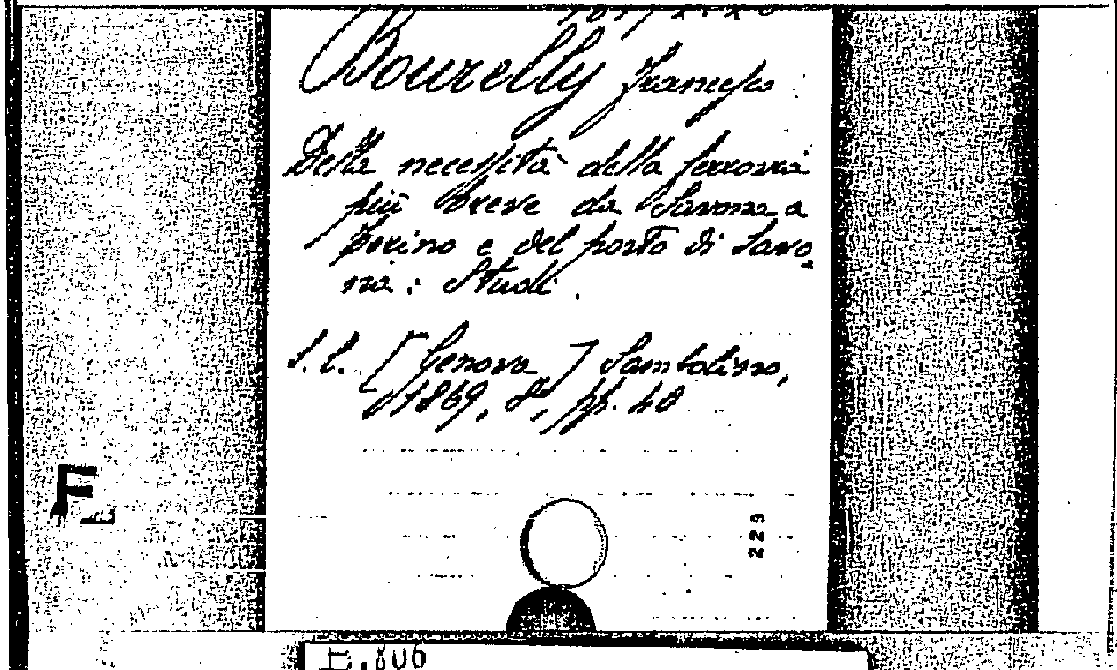 Bourelly Francesco
Della necessità della ferrovia
più breve da Savona a
Torino e del porto di Savo
na: Studi.
s.l. [Genova] Sambolino,
1869, 8°, pp. 40
F
225
E.806